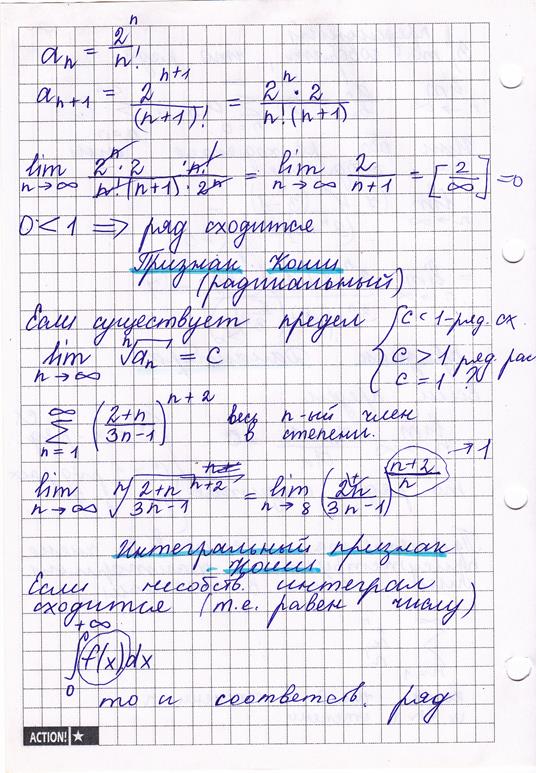 aₙ = 2ⁿ / n!
aₙ₊₁ = 2ⁿ⁺¹ / (n+1)! = 2ⁿ · 2 / n!(n+1)
lim n→∞ 2ⁿ · 2 · n! / n!(n+1) · 2ⁿ = lim n→∞ 2 / n+1 = [2/∞] = 0
0 < 1 ⇒ ряд сходится
Признак Коши
(радикальный)
Если существует предел { C < 1 - ряд. сх.
lim n→∞ ⁿ√aₙ = C C > 1 ряд рас
C = 1 ?
∞ Σ n=1 (2+n / 3n-1)ⁿ⁺² весь n-ый член
в степени.
lim n→∞ ⁿ√(2+n / 3n-1)ⁿ⁺² = lim n→8 (2+n / 3n-1)^(n+2 / n) → 1
Интегральный признак
- Коши
Если несобств. интеграл
сходится (т.е. равен числу)
+∞ ∫ 0 f(x)dx
то и соответств. ряд
ACTION! ★